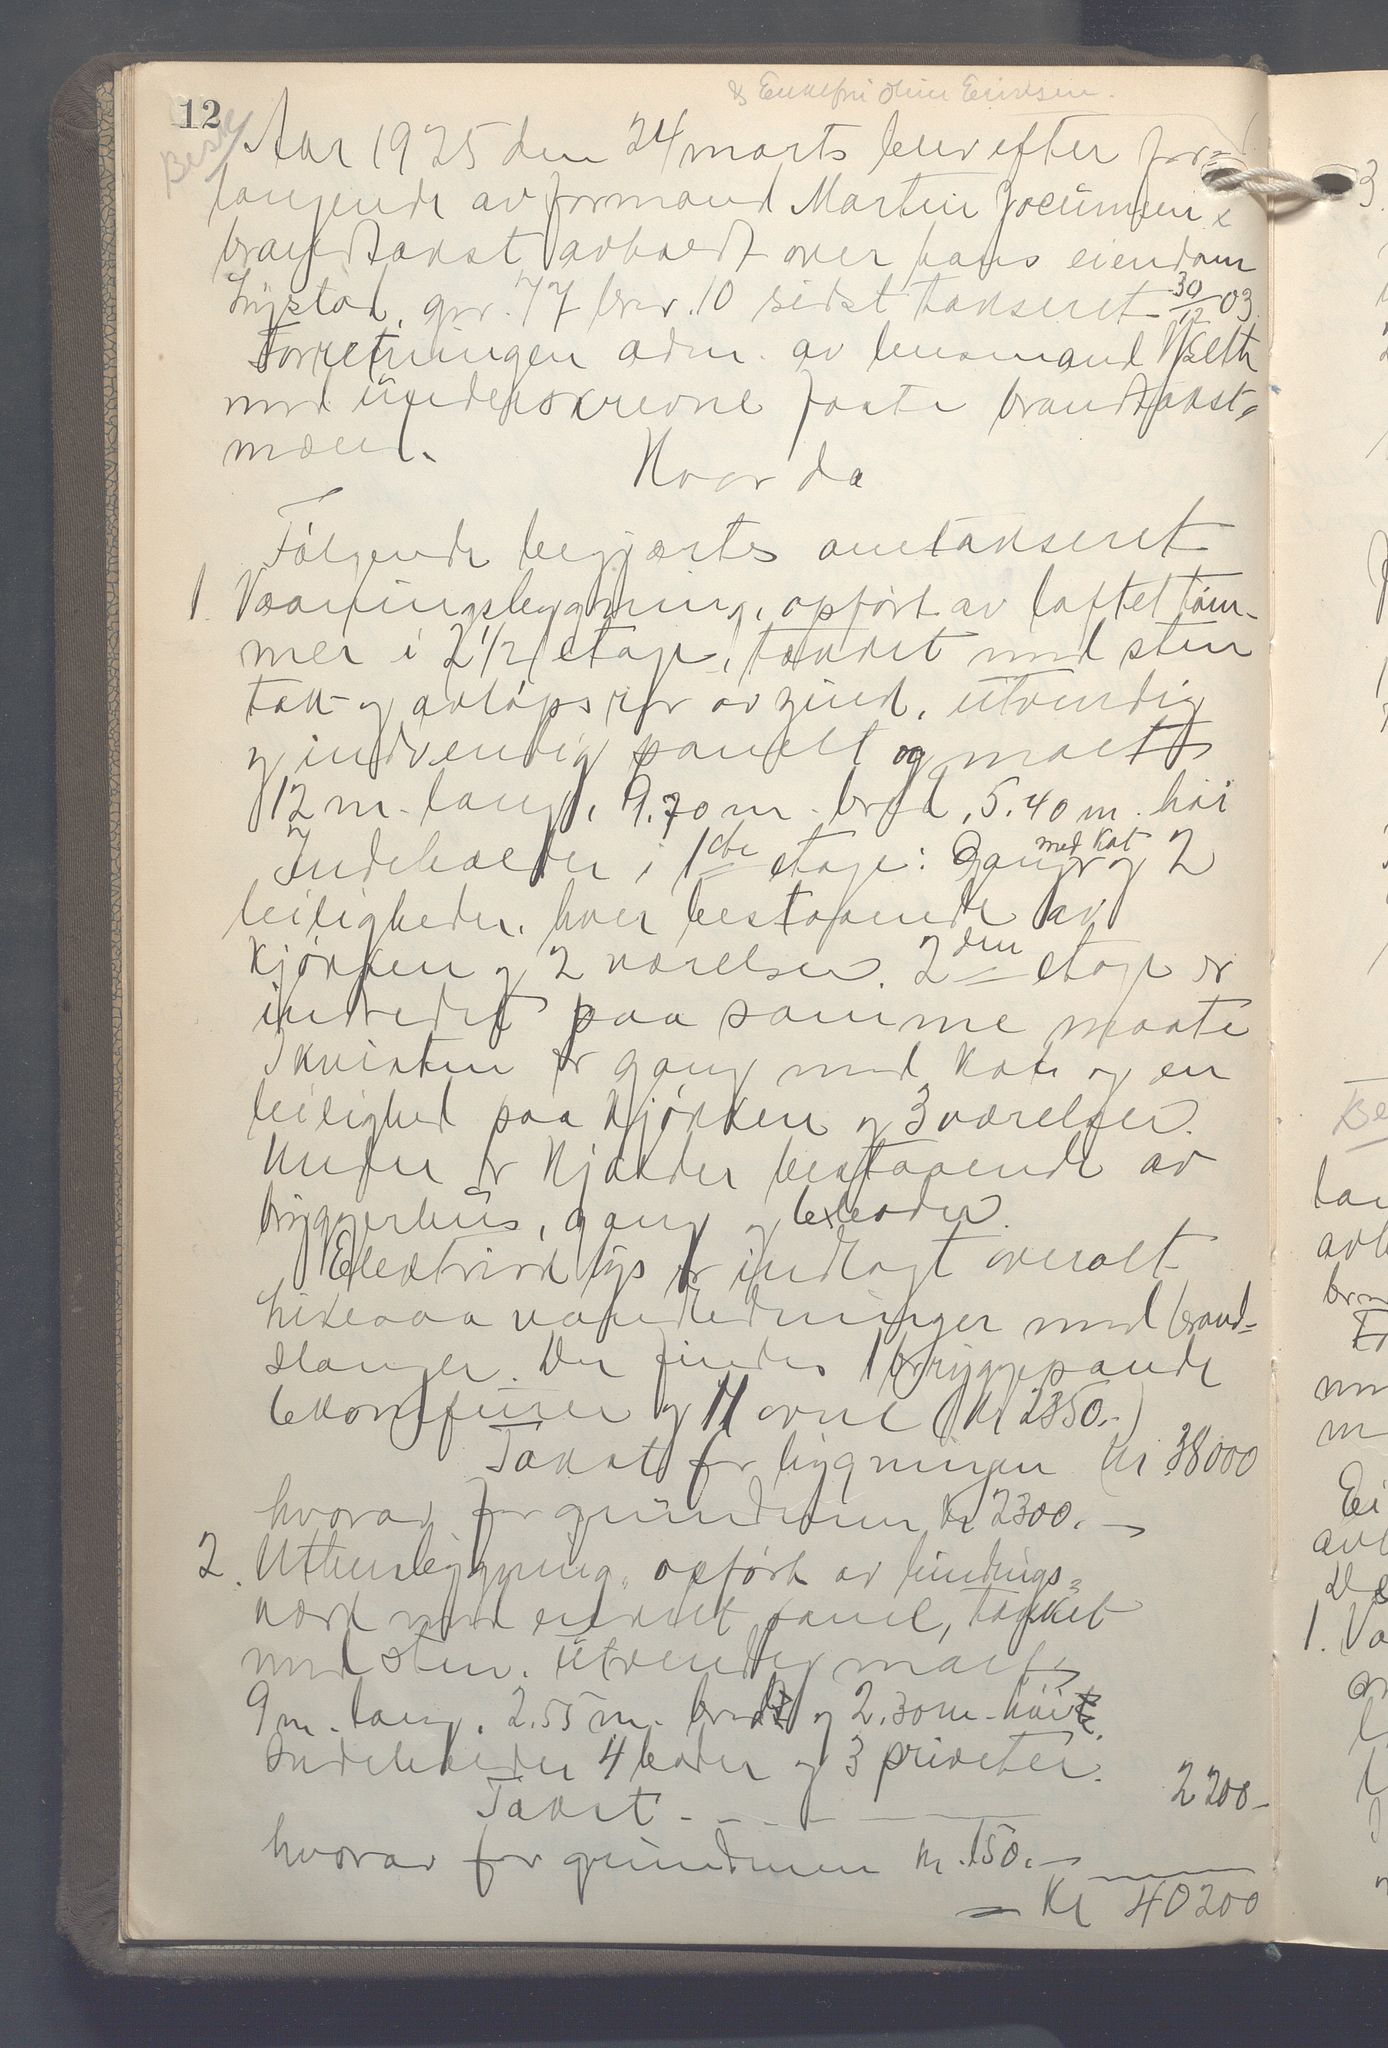 12
& Enkefru Oline Eriksen.
Besk
Aar 1925 den 24 marts blev efter for=
langende av formand Martin Jocumsen &
brandtakst avholdt over hans eiendom
Lystad, gnr. 77 bnr. 10 sidst takseret 30/12 03.
Forretningen adm. av lensmand
med underskrevne faste brandtakst=
mænd.
Hvor da
Følgende begjærtes omtakseret
1. Vaaningsbygning, opført av laftet tøm-
mer i 2 1/2 etage, tækket med sten
tak og avløpsrør av zink, utvendig
og indvendig panelt og malt
12 m. lang, 9.70 m. bred, 5.40 m. høi
Indeholder i 1ste etage: Gang med kot og 2
leiligheder, hver bestaaende av
kjøkken og 2 værelser. 2den etage er
indredet paa samme maate
I kvisten er gang med kot og en
leilighed paa kjøkken og 3 værelser.
Under er kjælder bestaaende av
bryggerhus, gang og 6 boder.
Elektrisk lys er indlagt overalt
likesaa vandledninger med brand=
slanger. Der findes 1 bryggepande
6 komfurer og 11 ovne (kr 2350.-)
Takst for bygningen kr 38000
hvorav for grundmur kr 2300.-
2. Uthusbygning, opført av bindings=
værk med enkelt panel, tækket
med sten. Utvendig malt
9 m. lang, 2.55 m. bred og 2.30 m. høi
Indeholder 4 boder og 3 priveter.
Takst - - - 2200-
hvorav for grundmur kr. 150.-
= Kr 40200
3.
Be
1. Va